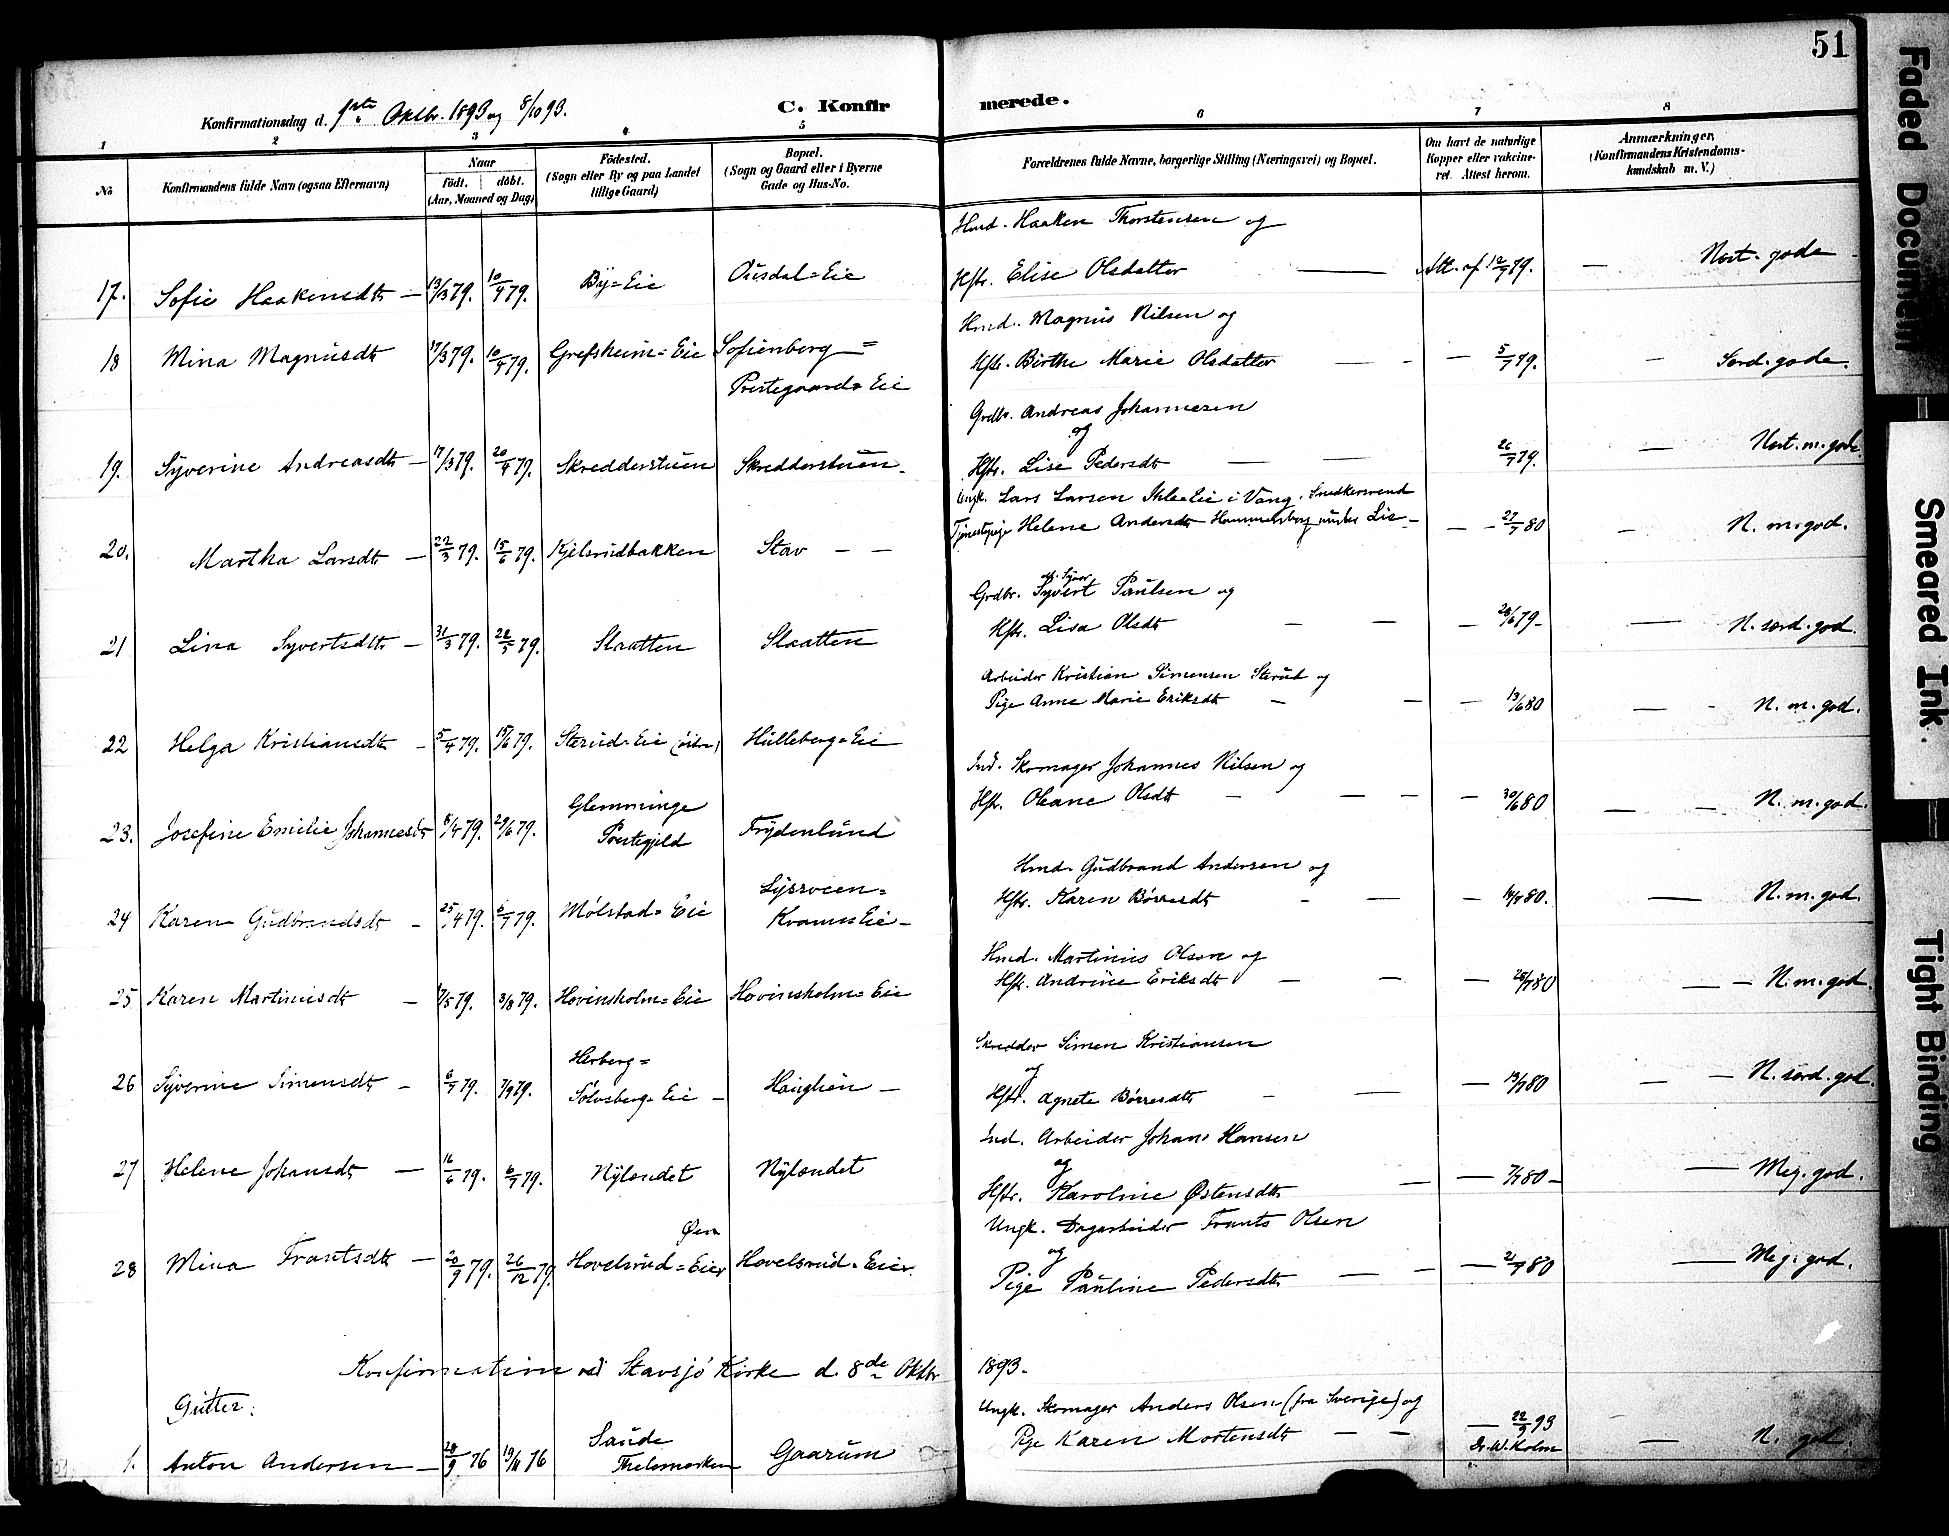 51
Konfirmationsdag d. 1ste Oktbr. 1893 og 8/10 93.
C. Konfirmerede.
1 2 3 4 5 6 7 8
No
Konfirmandens fulde Navn (ogsaa Efternavn)
Naar
födt. döbt.
(Aar, Maaned og Dag)
Födested.
(Sogn eller By og paa Landet
tillige Gaard)
Bopæl.
(Sogn og Gaard eller i Byerne
Gade og Hus-No.
Forældrenes fulde Navne, borgerlige Stilling (Næringsvei) og Bopæl.
Om havt de naturlige
Kopper eller vakcine-
ret. Attest herom.
Anmærkninger,
(Konfirmandens Kristendoms-
kundskab m. V.)
Hmd. Haaken Thorstensen og
17. Sofie Haakensdtr — 13/3 79. 10/4 79. By=Eie Ousdal=Eie Hstr. Elise Olsdatter — Att. af 10/7 79. — Nest. gode
Hmd. Magnus Nilsen og
18 Mina Magnusdtr 17/3 79. 10/4 79. Grefsheim=Eie Sofienberg = Hstr. Birthe Marie Olsdatter — — 5/7 79. — Særd. gode.
Prestegaards Eie
Grdbr. Andreas Johannesen
og
19. Syverine Andreasdtr — 17/3 79. 20/4 79. Skredderstuen Skredderstuen. Hstr. Lise Pedersdtr — — 26/7 79. — Nest. m. gode.
Ungk. Lars Larsen Eie i Vang. Snedkersvend
Tjenestepige Helene Andersdtr under Lie —
20. Martha Larsdtr — 22/3 79. 15/6 79. Kjelsrudbakken Stav — — — 27/7 80 — N. m. god.
Grdbr. Syvert Paulsen og
21 Lina Syvertsdtr — 31/3 79. 22/5 79. Slaatten Slaatten Hstr. Lisa Olsdtr — — — 28/6 79 — — N. særd. god.
Arbeider Kristian Simensen Sterud og
Pige Anne Marie Eriksdtr — — — 13/6 80 — N. m. god.
22 Helga Kristiansdtr — 5/4 79. 15/6 79. Sterud=Eie Hulleberg=Eie
Ind. Skomager Johannes Nilsen og
Hstr. Oleane Olsdtr — — — — 30/6 80 — — N. m. god.
23. Josefine Emilie Johannesdtr 8/4 79. 29/6 79. Glemminge Frydenlund
Prestegjeld
Hmd. Gudbrand Andersen og
Hstr. Karen Børresdtr — — — 14/7 80. — N. m. god.
24 Karen Gudbrandsdtr — 25/4 79. 6/7 79. Mølstad=Eie
Kvarns Eie —
Hmd. Martinius Olsen og
Hstr. Andrine Eriksdtr — — — 28/7 80 — — N. m. god.
25 Karen Martinusdtr — 7/5 79. 3/8 79. Hovinsholm=Eie Hovinsholm=Eie
Skredder Simen Kristiansen
og
26 Syverine Simensdtr — 6/7 79. 7/9 79. Herberg= Haughen —
Sølvsberg=Eie —
Hstr. Agnete Børresdtr — — — 13/7 80 — — N. særd. god.
Ind. Arbeider Johan Hansen
og
27 Helene Johansdtr — 16/6 79. 6/7 79. Nylændet Nylændet Hstr. Karoline Østensdtr — — 7/7 80 — — Meg. god.
Ungk. Dagarbeider Frants Olsen
og
28 Mina Frantsdtr — 20/9 79. 26/12 79. Hovelsrud=Eier Hovelsrud=Eier. Pige Pauline Pedersdtr — — — 2/7 80 — Meg. god.
Konfirmation ved Stavsjø Kirke d. 8de Oktbr 1893.
Gutter:
Ungk. Skomager Anders Olsen (fra Sverige) og
1. Anton Andersen — 28/9 76 19/11 76 Saude Gaarum Pige Karen Mortensdtr — — — 22/9 93 — N. god.
Thelemarken
Dr. W. Holm
Faded Document
Smeared Ink.
Tight Binding